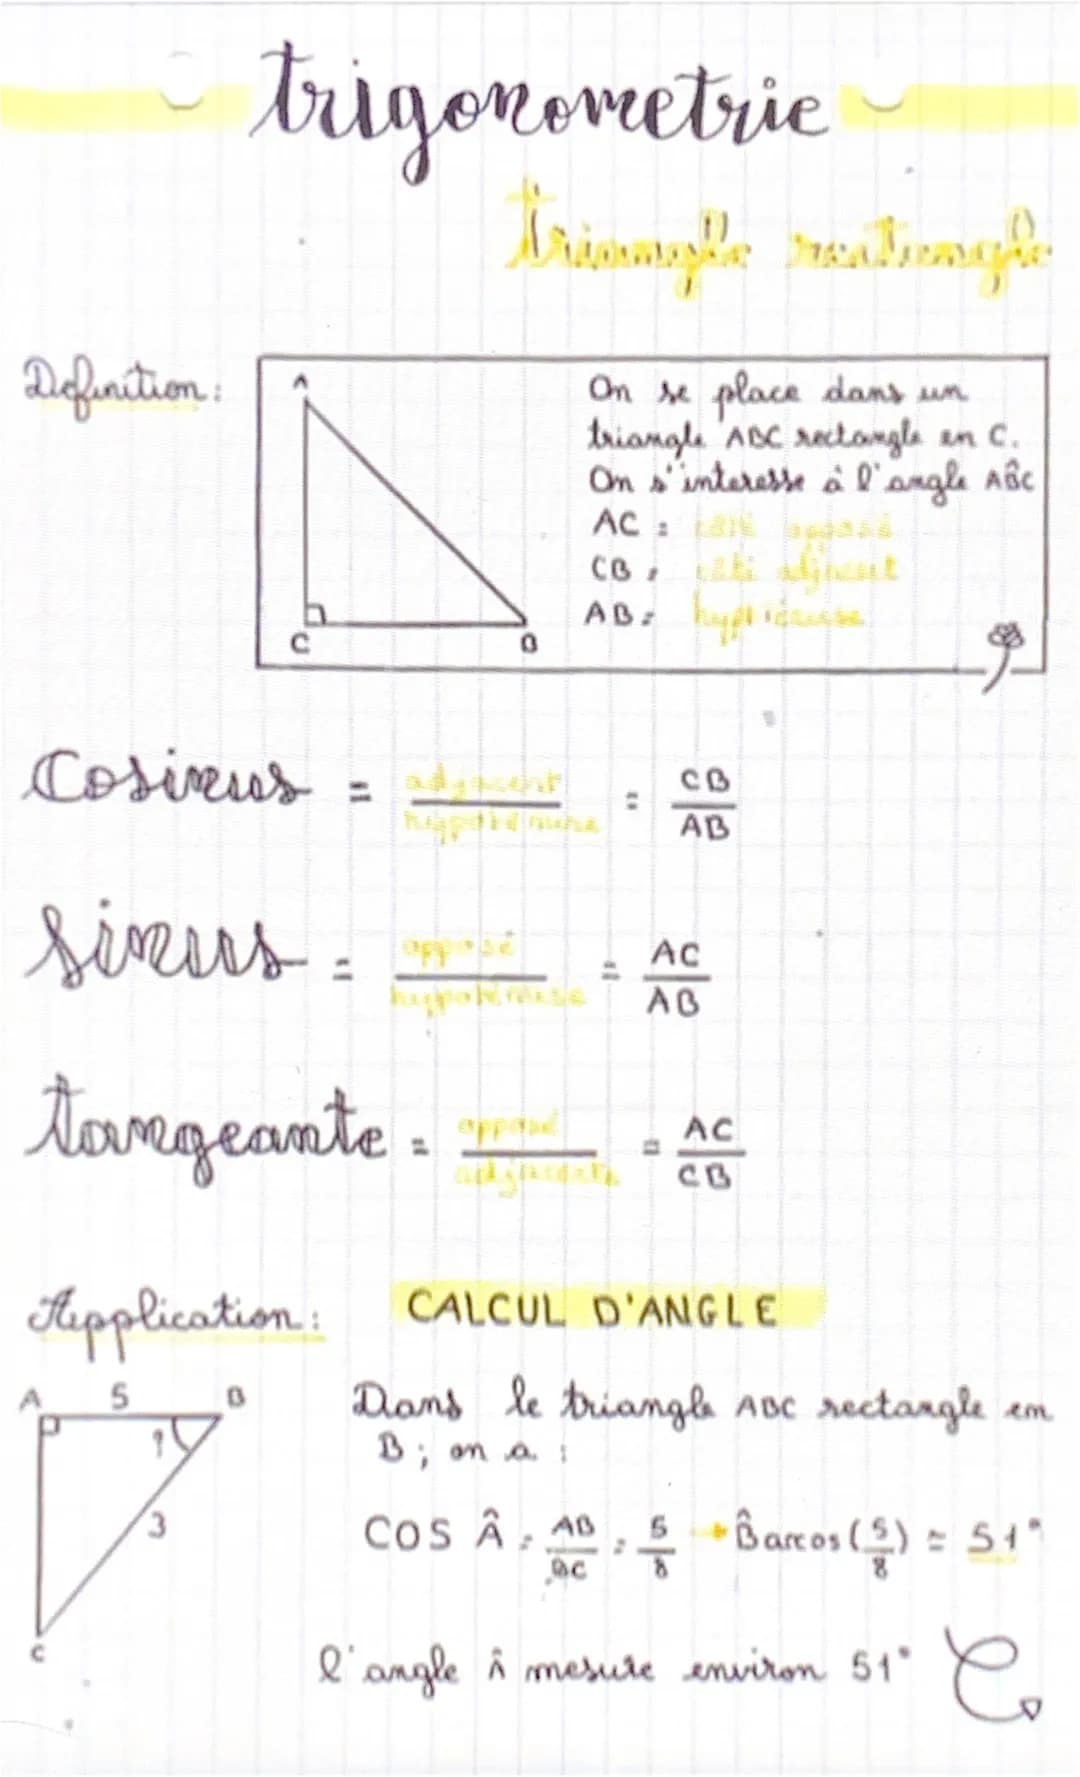 trigonometrie
triangle rectangle
Definition:
A
C
B
On se place dans un
triangle ABC rectangle en C.
On s'interesse à l'angle AB̂C
AC : côté opposé
CB : côté adjacent
AB : hypoténuse
Cosinus = adjacent / hypoténuse = CB / AB
sinus = opposé / hypoténuse = AC / AB
tangeante = opposé / adjacents = AC / CB
Application: CALCUL D'ANGLE
A 5 B
?
3
C
Dans le triangle ABC rectangle en
B; on a :
COS Â = AB / BC = 5 / 8 → B̂ arcos (5/8) = 51°
l'angle Â mesure environ 51°